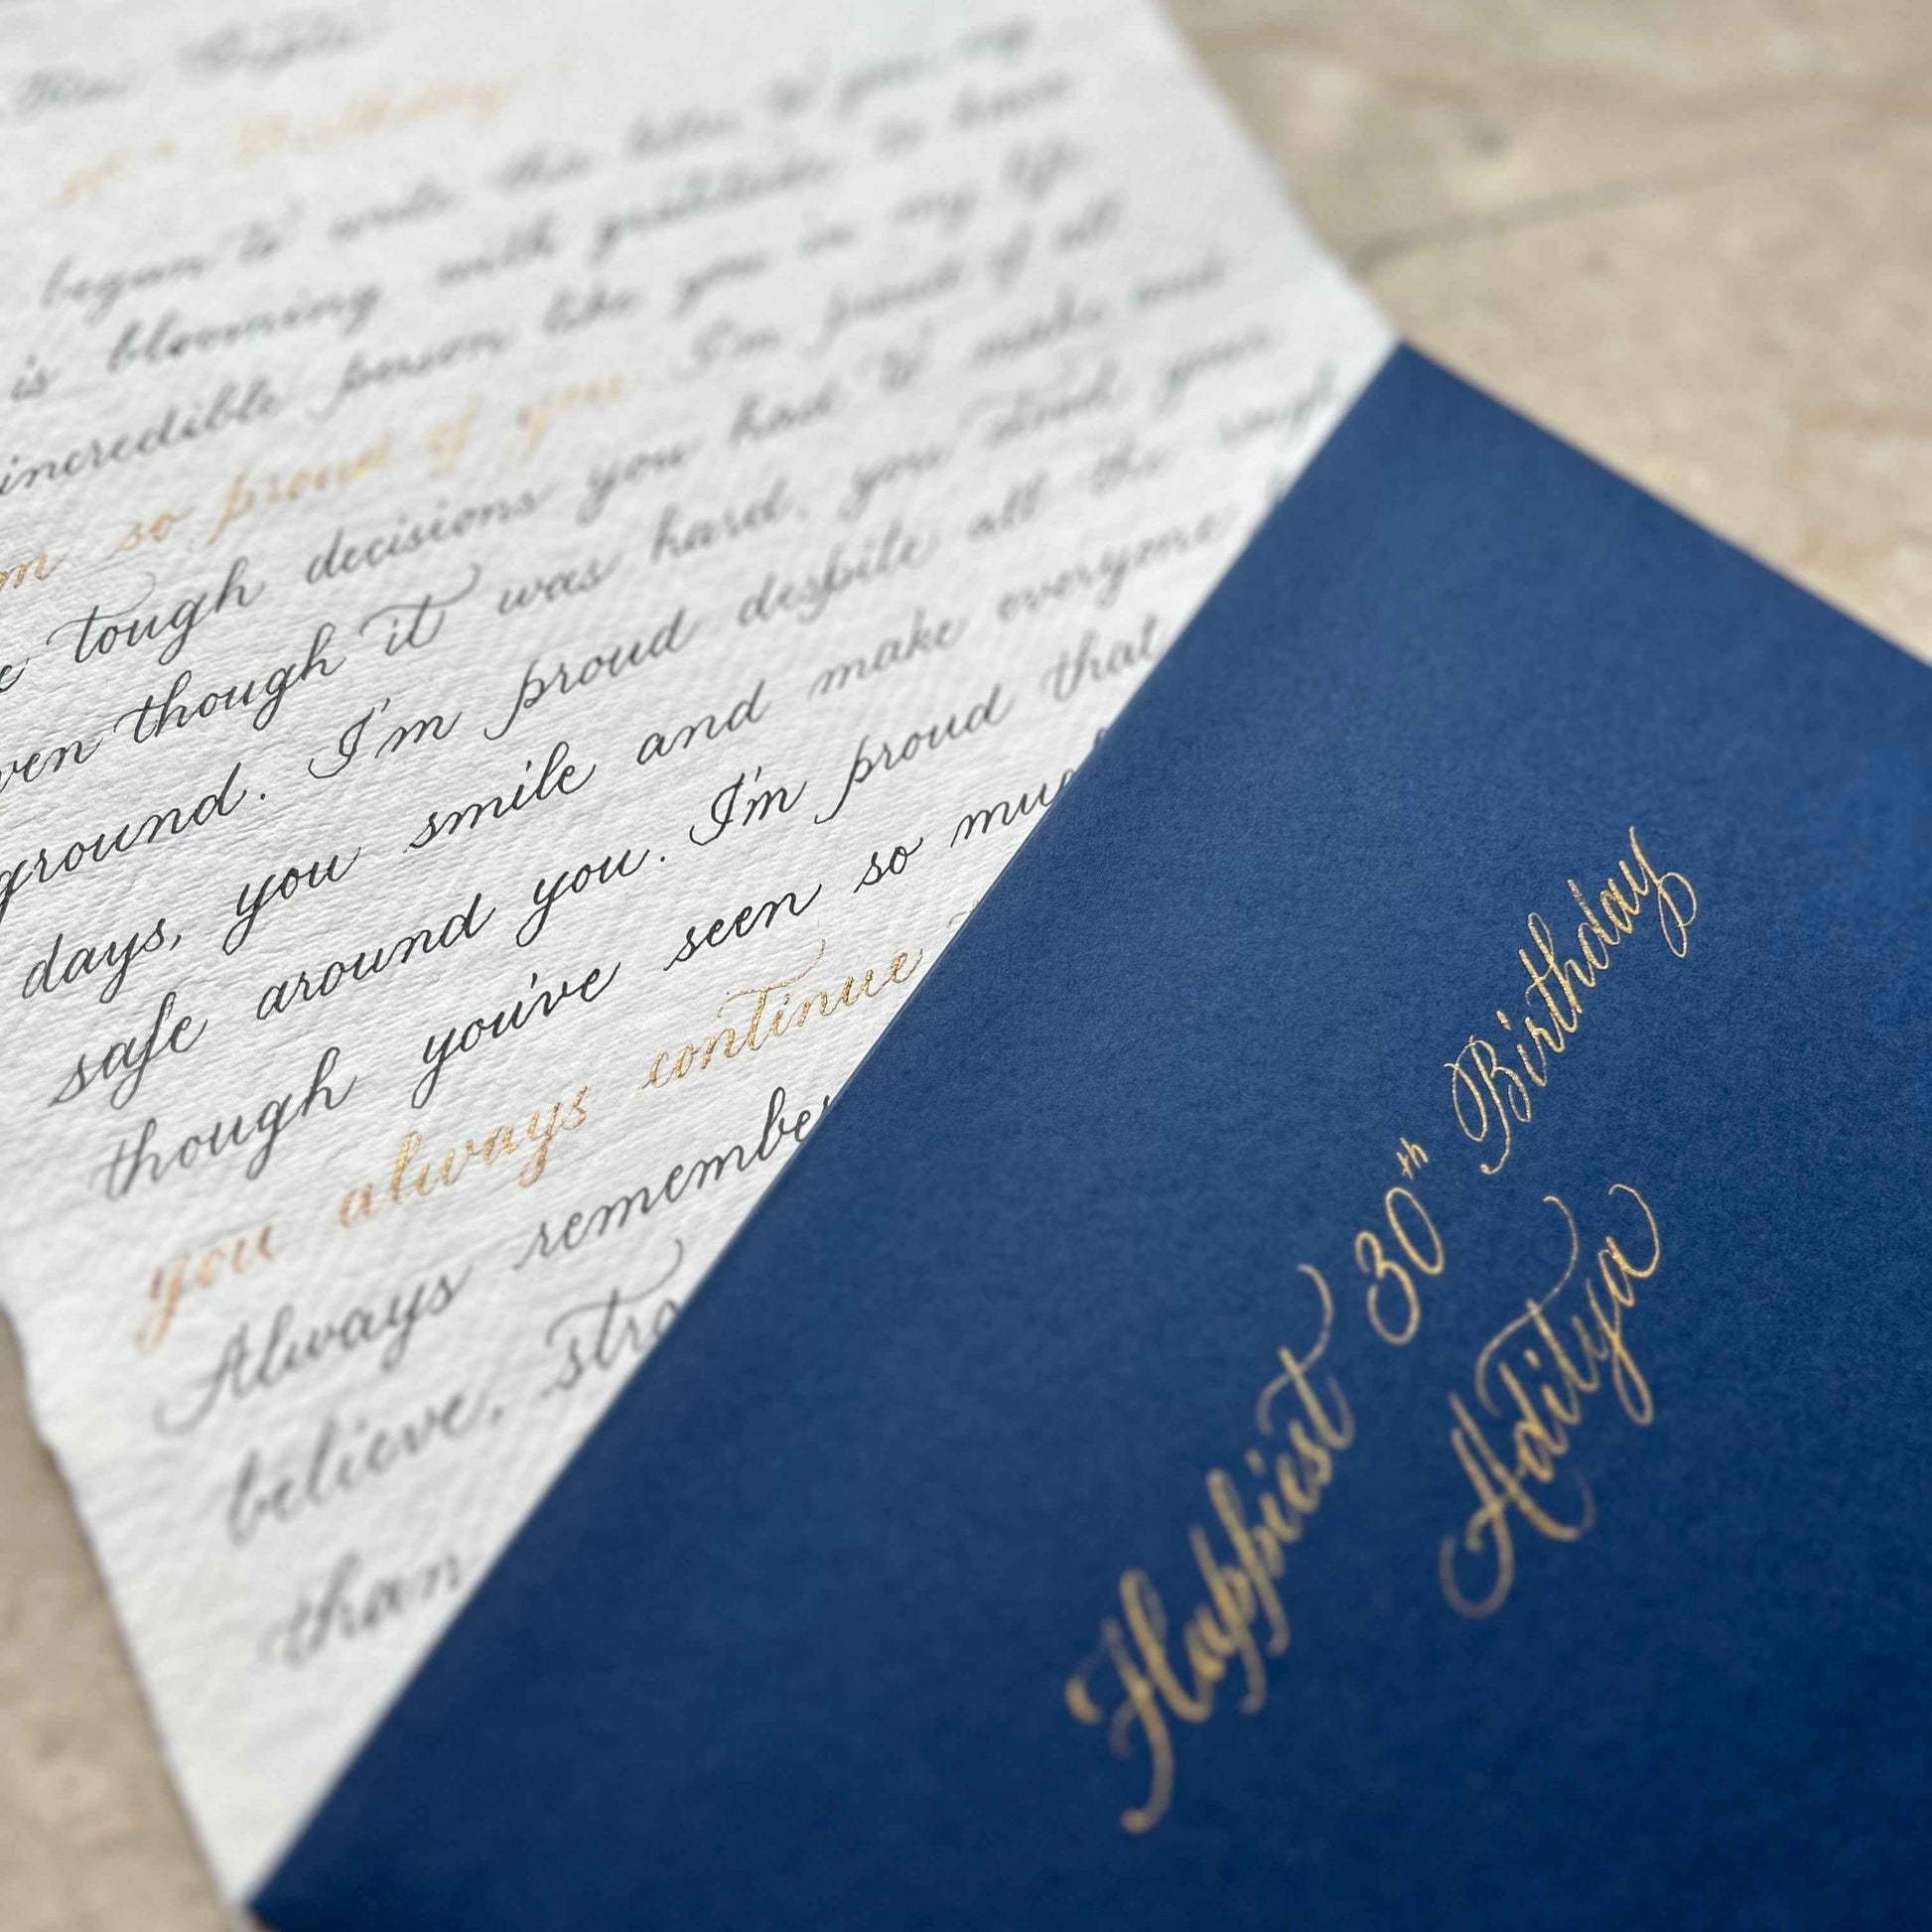 Birthday
began to write this letter to you my
is blooming with gratitude to have
incredible person like you in my life
so proud of you. I'm proud of all
tough decisions you had to make and
though it was hard, you stood your
ground. I'm proud despite all the rough
days, you smile and make everyone
safe around you. I'm proud that
though you've seen so
you always continue
Always remember
believe,
than
Happiest 30th Birthday
Aditya